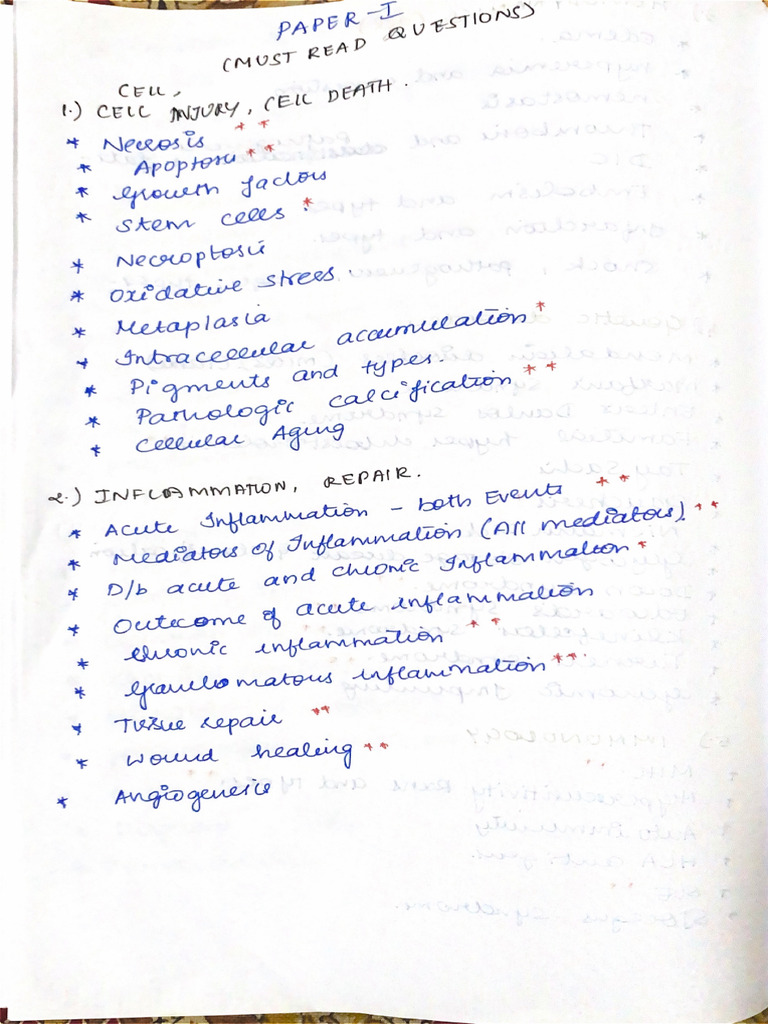 PAPER-I
(MUST READ QUESTIONS)
1.) CELL, CELL INJURY, CELL DEATH.
* Necrosis **
* Apoptosis **
* Growth factors
* Stem cells. *
* Necroptosis
* Oxidative strees.
* Metaplasia
* Intracellular accumulation *
* Pigments and types.
* Pathologic calcification **
* Cellular Aging
2.) INFLAMMATION, REPAIR.
* Acute Inflammation - both Events **
* Mediators of Inflammation (All mediators). **
* D/b acute and chronic Inflammation *
* Outcome of acute inflammation
* Chronic inflammation **
* Granulomatous inflammation **
* Tissue repair **
* Wound healing **
* Angiogenesis